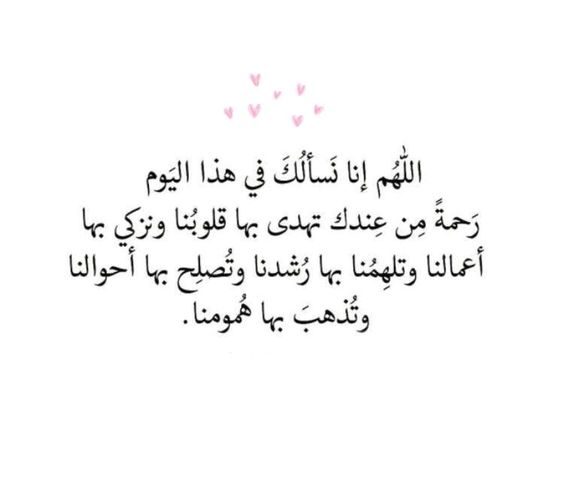 اللّٰهُم إنا نَسألُكَ في هذا اليَوم
رَحمةً مِن عِندك تهدى بها قلوبُنا ونزكي بها
أعمالنا وتلهِمُنا بها رُشدنا وتُصلِح بها أحوالنا
وتُذهبَ بها هُمومنا.